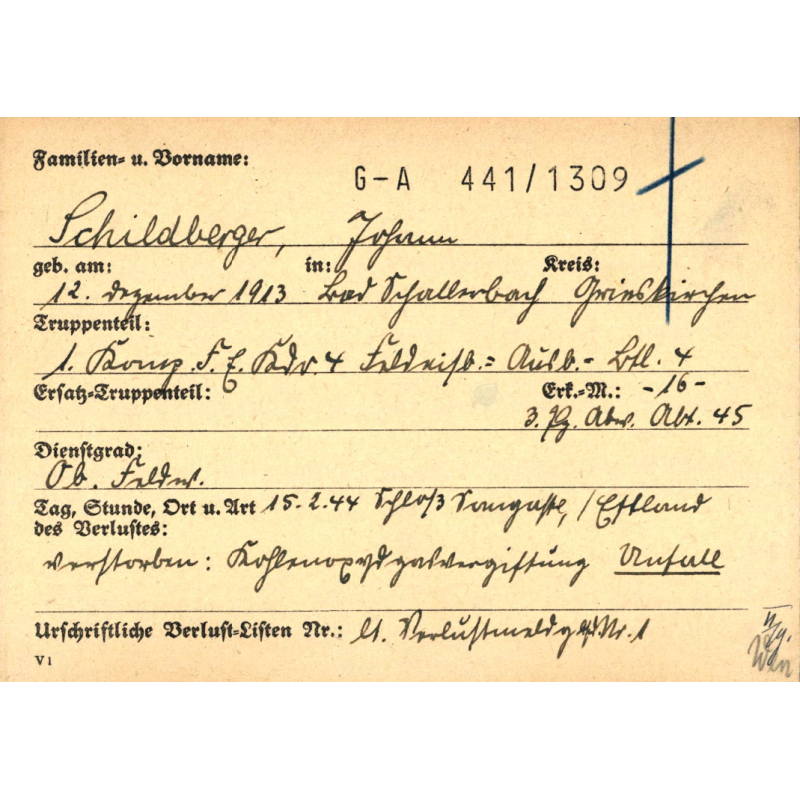 Familien- u. Vorname:
G-A 441/1309
Schildberger, Johann
geb. am: in: Kreis:
12. Dezember 1913 Bad Schallerbach Grieskirchen
Truppenteil:
1. Komp. F. E. Kdr. 4 Ausb.- Btl. 4
Ersatz-Truppenteil: Erk.-M.: -16-
3. Pz. Abw. Abt. 45
Dienstgrad:
Ob. Feldw.
Tag, Stunde, Ort u. Art 15.2.44 Schloß Sangaste, / Estland
des Verlustes:
verstorben: Kohlenoxydgasvergiftung Unfall
Urschriftliche Verlust-Listen Nr.: lt. Verlustmeldg. Nr. 1
V 1